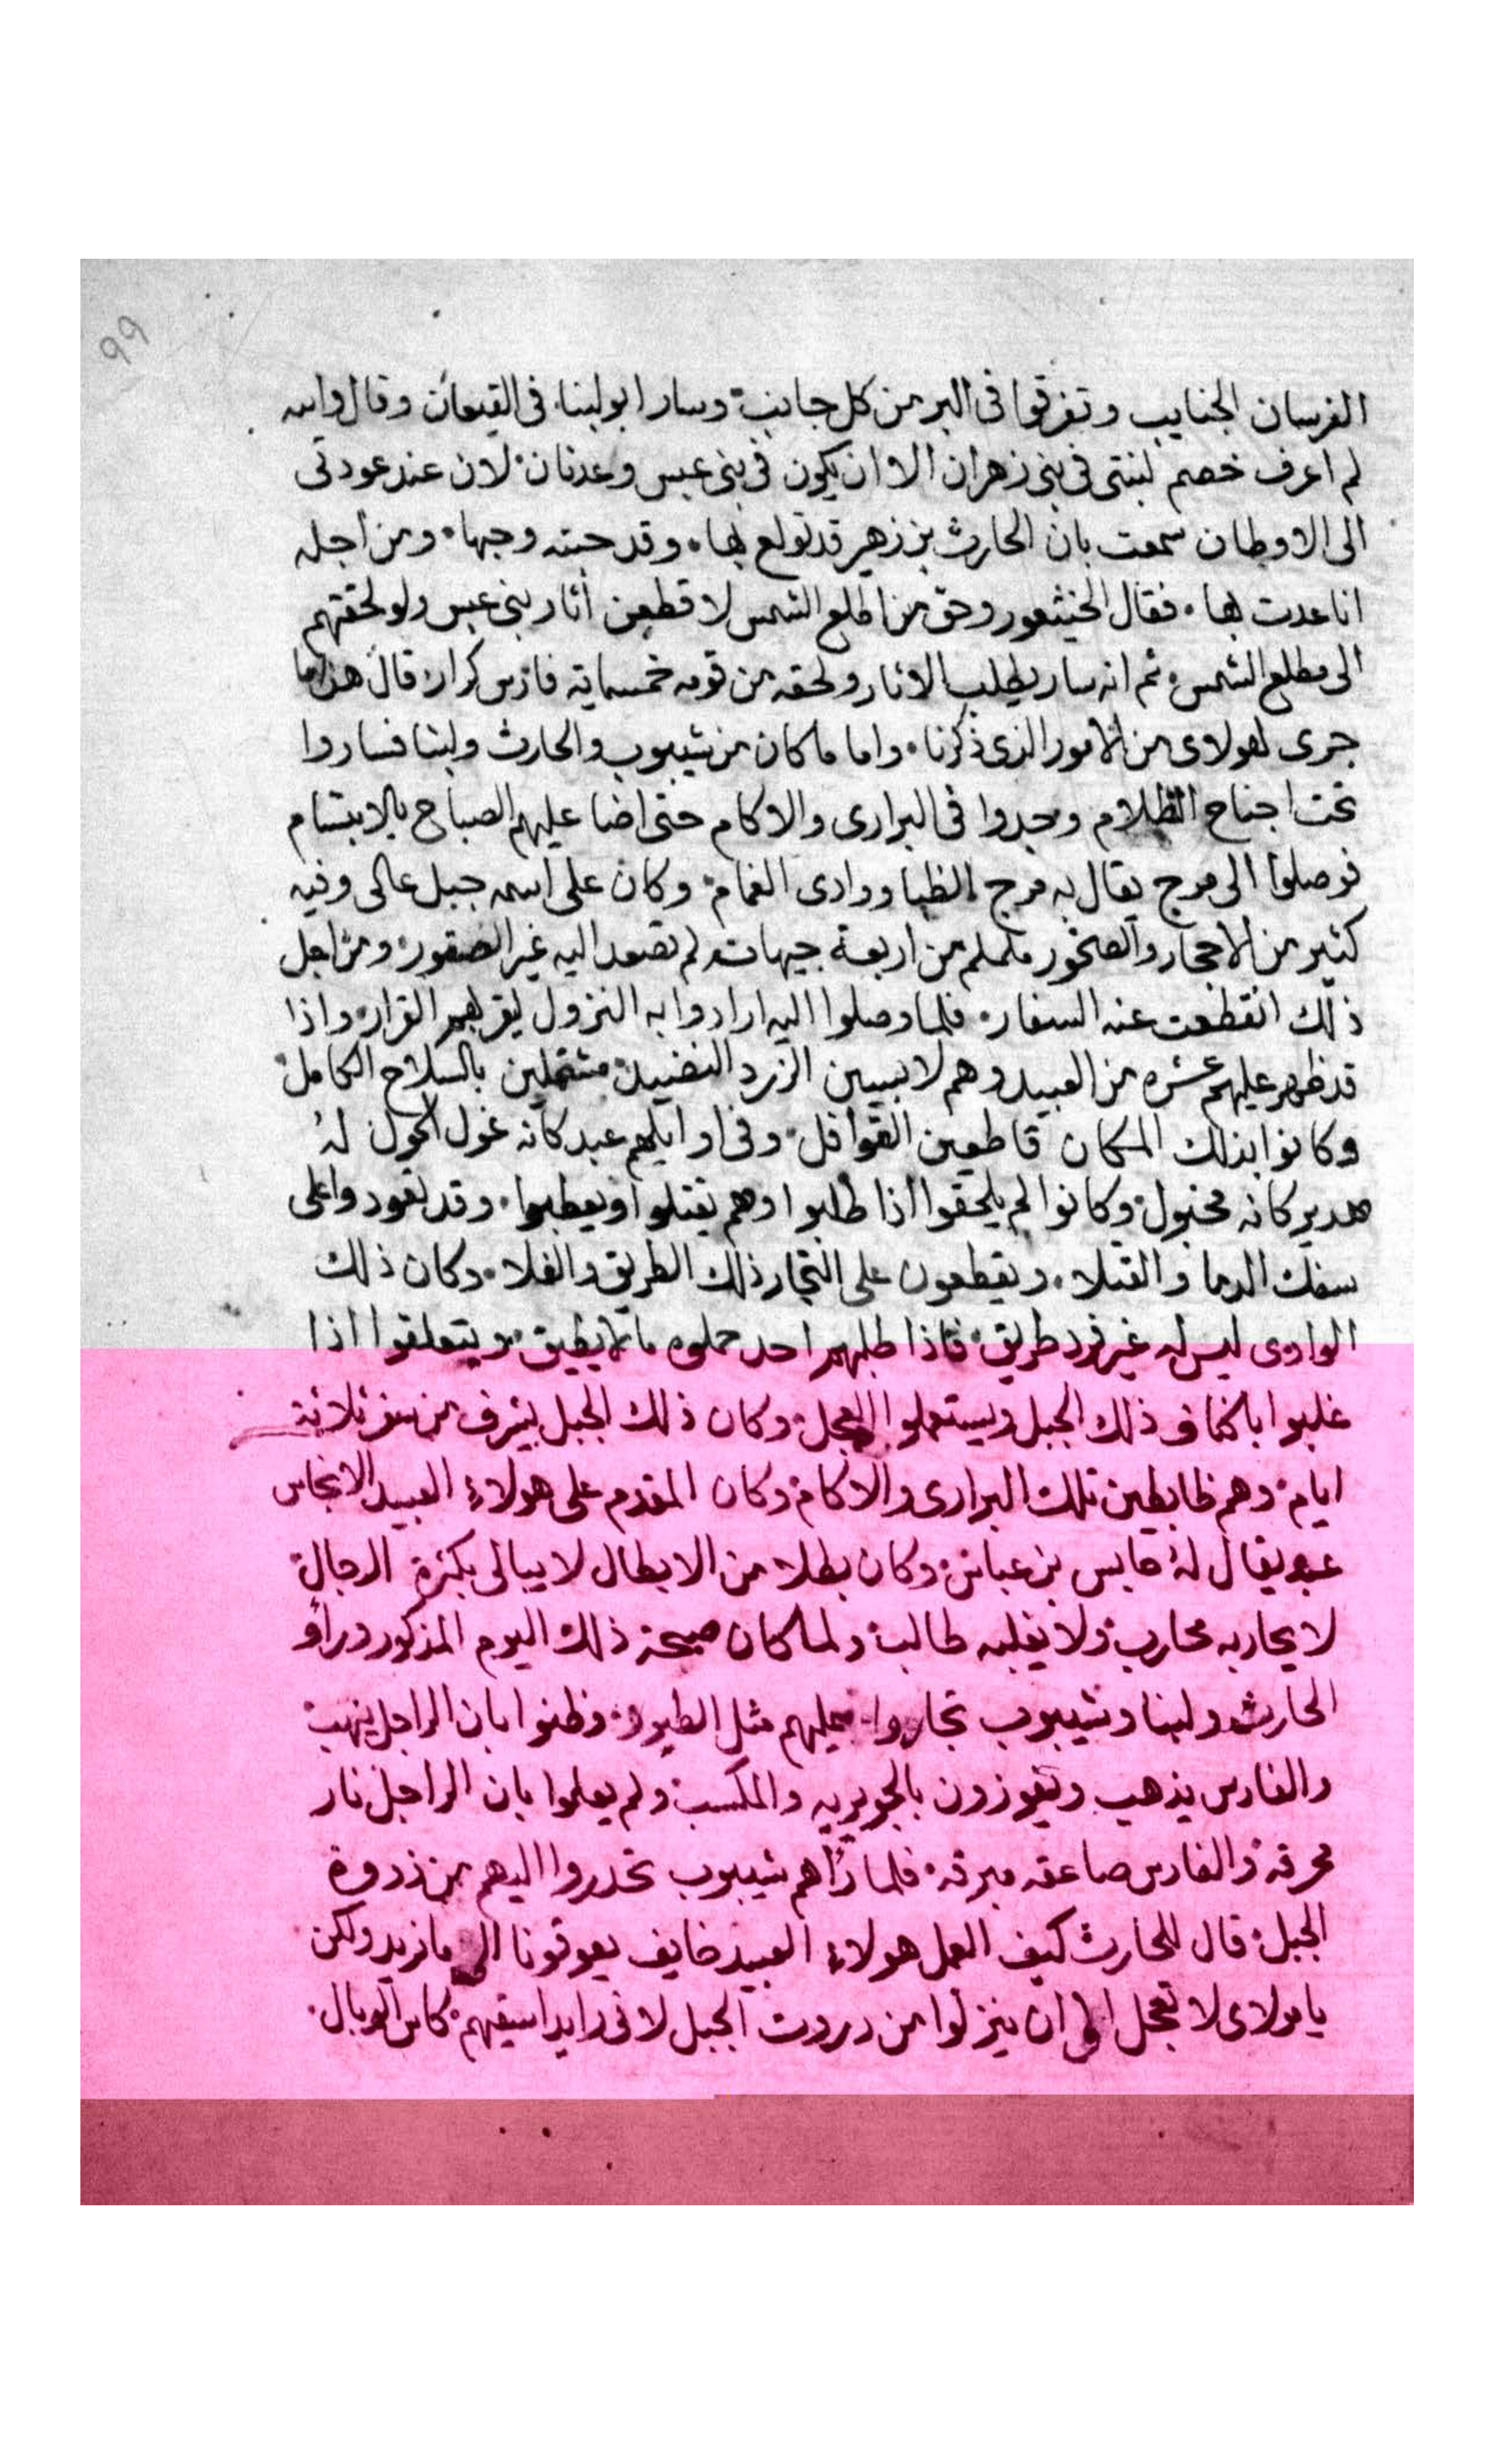 99
الفرسان الجنايب وتفرقوا فى البر من كل جانب وسار ابو لبنا فى القيعان وقال والله
لم اعرف خصم لبنتى فى بنى زهران الا ان يكون فى بنى عبس وعدنان لان عند عودتى
الى الاوطان سمعت بان الحارث بن زهير قد تولع بها وقد حبته وحبها ومن اجله
انا عدت بها فقال الخيثعور وحق من اطلع الشمس لا قطعن أثار بنى عبس ولو لحقتهم
الى مطلع الشمس ثم انه سار يطلب الاثار ولحقه من قومه خمسماية فارس كرار قال هذا ما
جرى لهولاى من الامور الذى ذكرنا واما ما كان من شيبوب والحارث ولبنا فساروا
تحت اجناح الظلام وجدوا فى البرارى والاكام حتى اضا عليهم الصباح بالابتسام
فوصلوا الى مرج يقال له مرج الظبا ووادى الغمام وكان على اسمه جبل عالى وفيه
كثير من الاحجار والصخور ململم من اربعة جيهات لم تصعد اليه غير الصقور ومن اجل
ذلك انقطعت عنه السفار فلما وصلوا اليه ارادوا به النزول ليقر لهم القرار واذا
قد ظهر عليهم عشره من العبيد وهم لابيين الزرد النضيد مشتملين بالسلاح الكامل
وكانوا بذلك المكان قاطعين القوافل وفى اوايلهم عبد كانه غول الحول لهُ
هدير كانه مخبول وكانوا لم يلحقوا اذا طلبوا وهم يقتلوا ويعطبوا وقد تعودوا على
سفك الدما والقتلا ويقطعون على التجار ذلك الطريق والفلا وكان ذلك
الوادى ليس له غير فرد طريق فاذا طلبهم احد حملوه ما لا يطيق ويتعلقوا اذا
غلبوا باكناف ذلك الجبل ويستعملوا العجل وكان ذلك الجبل يشرف من سفر ثلاثة
ايام وهم ظابطين تلك البرارى والاكام وكان المقدم على هولاء العبيد الانجاس
عبد يقال لهُ حابس بن عباس وكان بطلا من الابطال لا يبالى بكثرة الرجال
لا يحاربه محارب ولا يغلبه طالب ولما كان صبحة ذلك اليوم المذكور وراو
الحارث ولبنا وشيبوب تجاروا عليهم مثل الطيور وظنوا بان الراجل ينهب
والفارس يذهب ويفوزون بالجويريه والمكسب ولم يعلموا بان الراجل نار
محرقه والفارس صاعقه مبرقه فلما رأهم شيبوب تحدروا اليهم من ذروة
الجبل قال للحارث كيف العمل هولاء العبيد خايف يعوقونا الى ما نريد ولكن
يا مولاى لا تعجل الى ان ينزلوا من دروت الجبل لانى رايد اسيقهم كاس الوبال